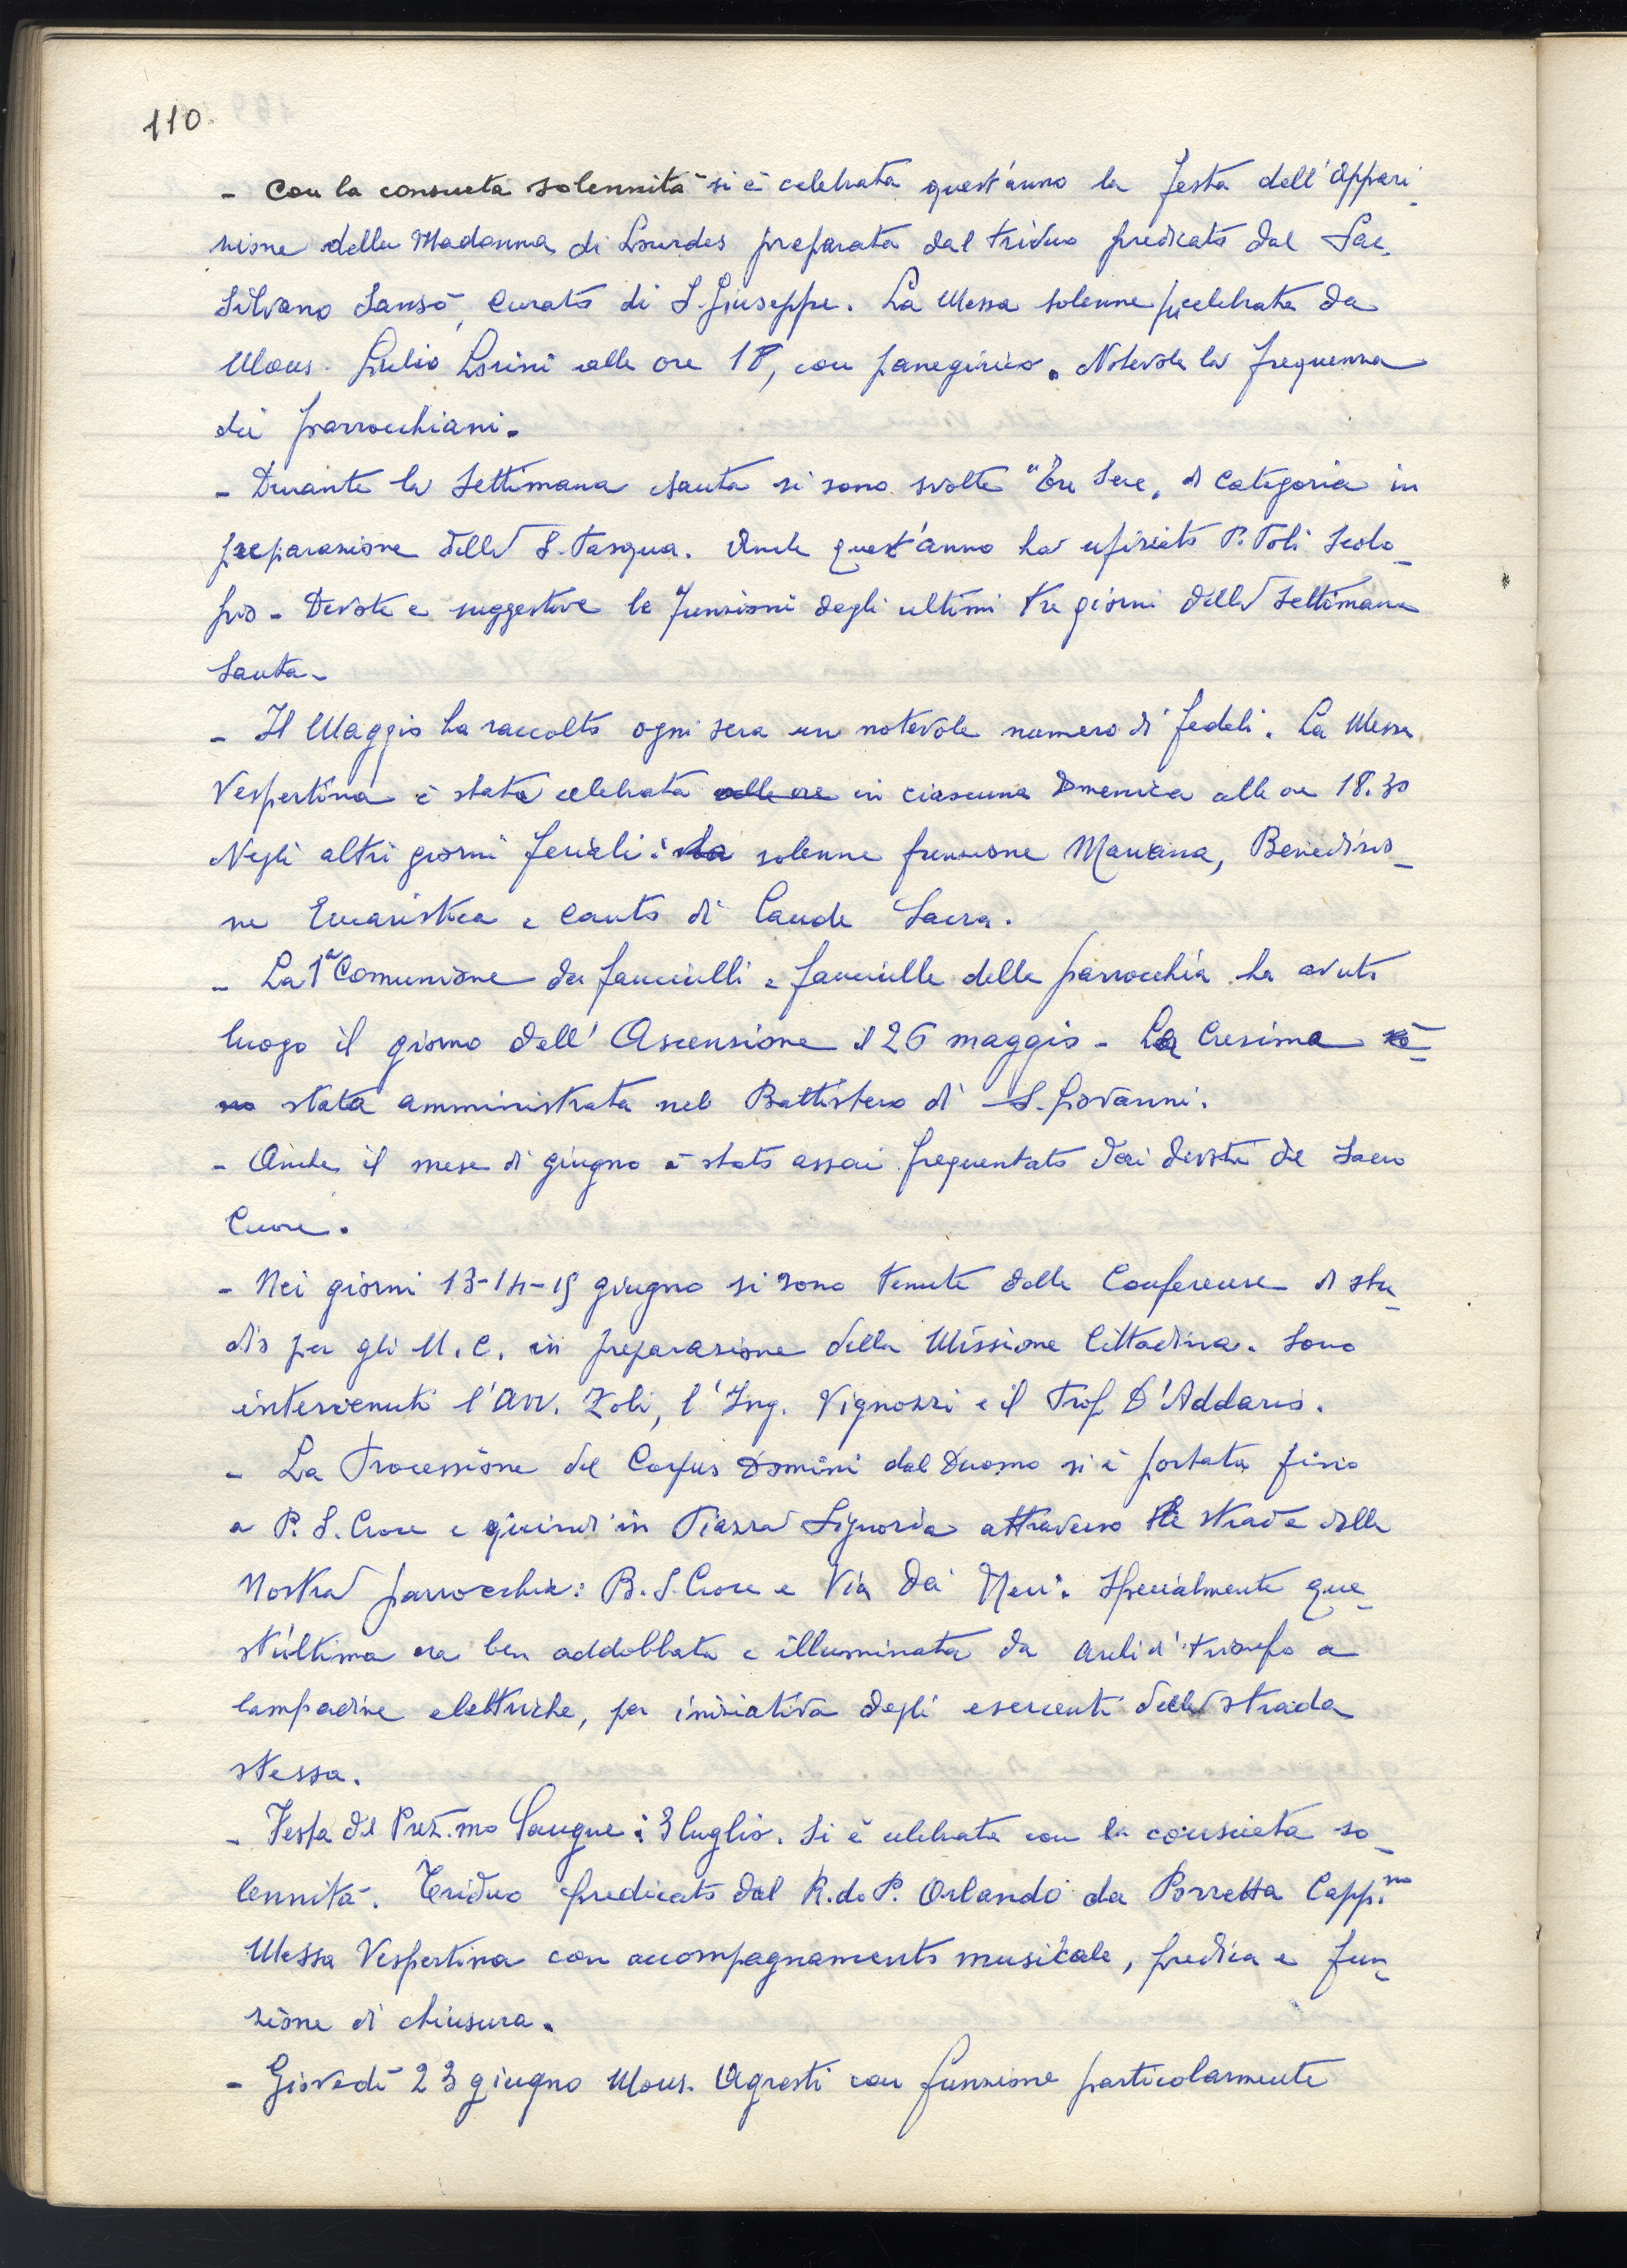 110.
- Con la consueta solennità si è celebrata quest'anno la festa dell'Appari-
zione della Madonna di Lourdes preparata dal triduo predicato dal Sac.
Silvano Sansò, Curato di S. Giuseppe. La Messa solenne fu celebrata da
Mons. Giulio Lorini alle ore 18, con panegirico. Notevole la frequenza
dei parrocchiani.
- Durante la Settimana Santa si sono svolte "Tre Sere" di categoria in
preparazione della S. Pasqua. Anche quest'anno ha ufiziato P. Poli Scolo-
pio - Devote e suggestive le funzioni degli ultimi tre giorni della Settimana
Santa.
- Il Maggio ha raccolto ogni sera un notevole numero di fedeli. La Messa
Vespertina è stata celebrata alle ore in ciascuna Domenica alle ore 18.30
Negli altri giorni feriali: la solenne funzione Mariana, Benedizio-
ne Eucaristica e Canto di Laude Sacra.
- La 1ª Comunione dei fanciulli e fanciulle della parrocchia ha avuto
luogo il giorno dell'Ascensione il 26 maggio - La Cresima è
stata amministrata nel Battistero di S. Giovanni.
- Anche il mese di giugno è stato assai frequentato dai devoti del Sacro
Cuore.
- Nei giorni 13-14-15 giugno si sono tenute delle Conferenze di stu-
dio per gli U. C. in preparazione della Missione Cittadina. Sono
intervenuti l'Avv. Zoli, l'Ing. Vignozzi e il Prof. D'Addario.
- La Processione del Corpus Domini dal Duomo si è portata fino
a P. S. Croce e quindi in Piazza Signoria attraverso le strade della
nostra parrocchia: B. S. Croce e Via dei Neri. Specialmente que-
st'ultima era ben addobbata e illuminata da archi di trionfo a
lampadine elettriche, per iniziativa degli esercenti della strada
stessa.
- Festa del Prez.mo Sangue: 3 luglio. Si è celebrata con la consueta so-
lennità. Triduo predicato dal R.do P. Orlando da Porretta Capp.no
Messa Vespertina con accompagnamento musicale, predica e fun-
zione di chiusura.
- Giovedì 23 giugno Mons. Agresti con funzione particolarmente